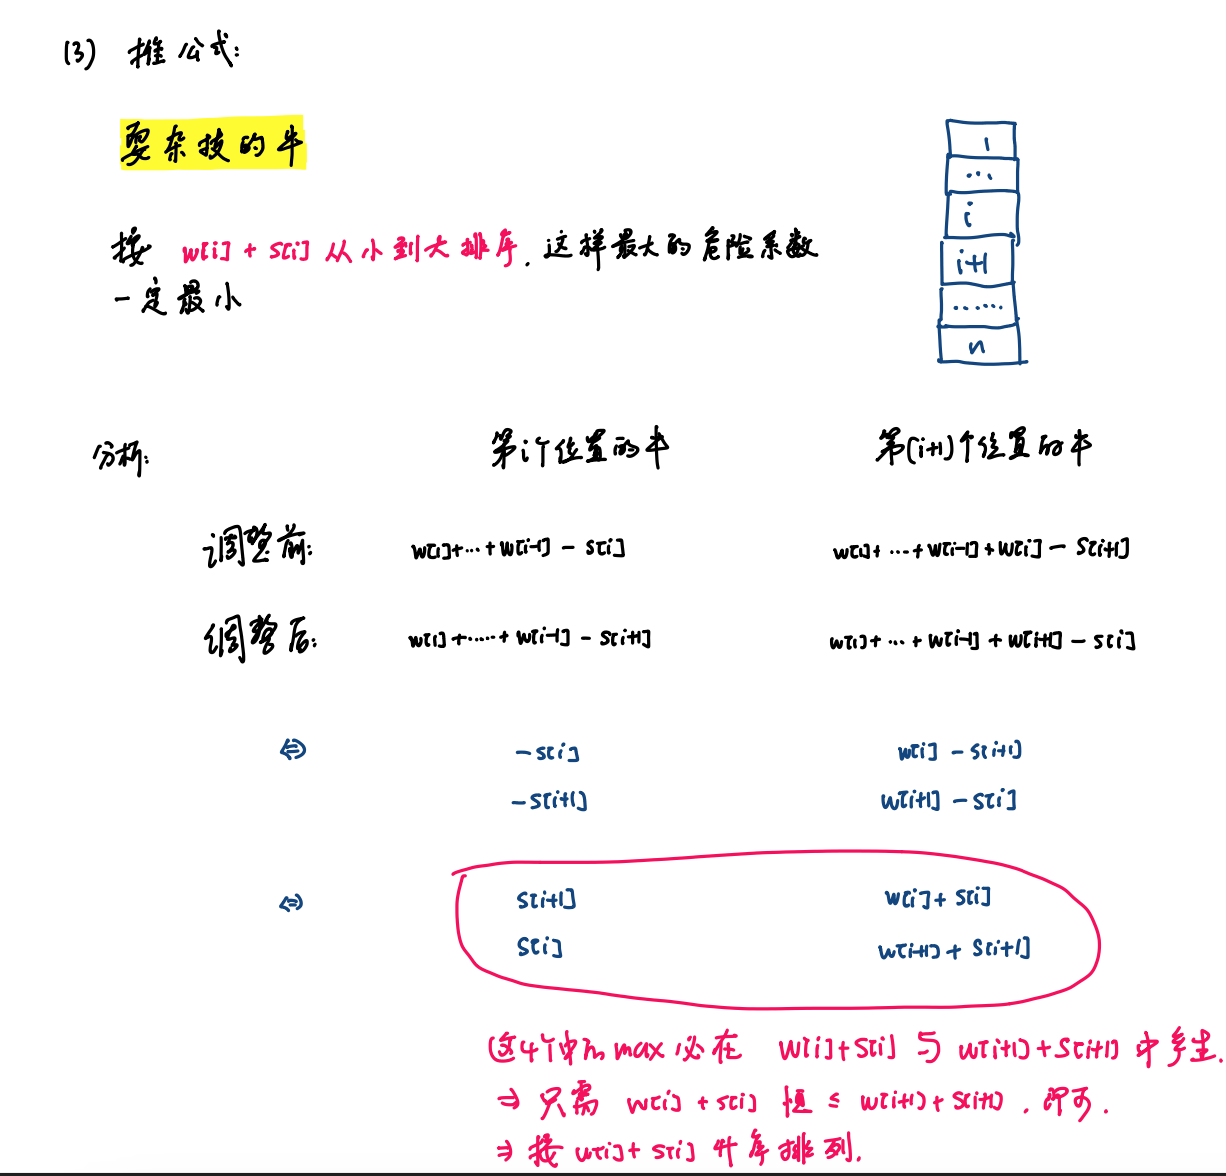 (3) 推公式:
耍杂技的牛
按 w[i] + s[i] 从小到大排序. 这样最大的危险系数
一定最小
1
...
i
i+1
......
n
分析: 第i个位置的牛 第(i+1)个位置的牛
调整前: w[1]+...+w[i-1] - s[i] w[1]+ ...+w[i-1]+w[i] - s[i+1]
调整后: w[1]+.....+w[i-1] - s[i+1] w[1]+ ... + w[i-1] + w[i+1] - s[i]
⇔ -s[i] w[i] - s[i+1]
-s[i+1] w[i+1] - s[i]
⇔ s[i+1] w[i]+ s[i]
s[i] w[i+1] + s[i+1]
这4个中的max必在 w[i]+s[i] 与 w[i+1]+s[i+1] 中产生.
⇒ 只需 w[i] + s[i] 恒 ≤ w[i+1]+s[i+1]. 即可.
⇒ 按 w[i]+ s[i] 升序排列.